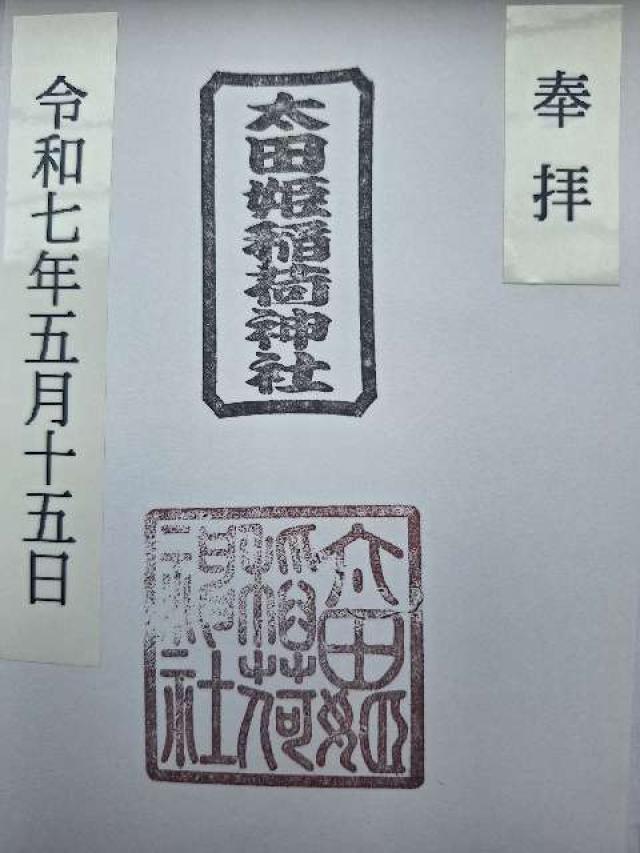 奉拝
太田姫稲荷神社
太田姫
稲荷
神社
令和七年五月十五日